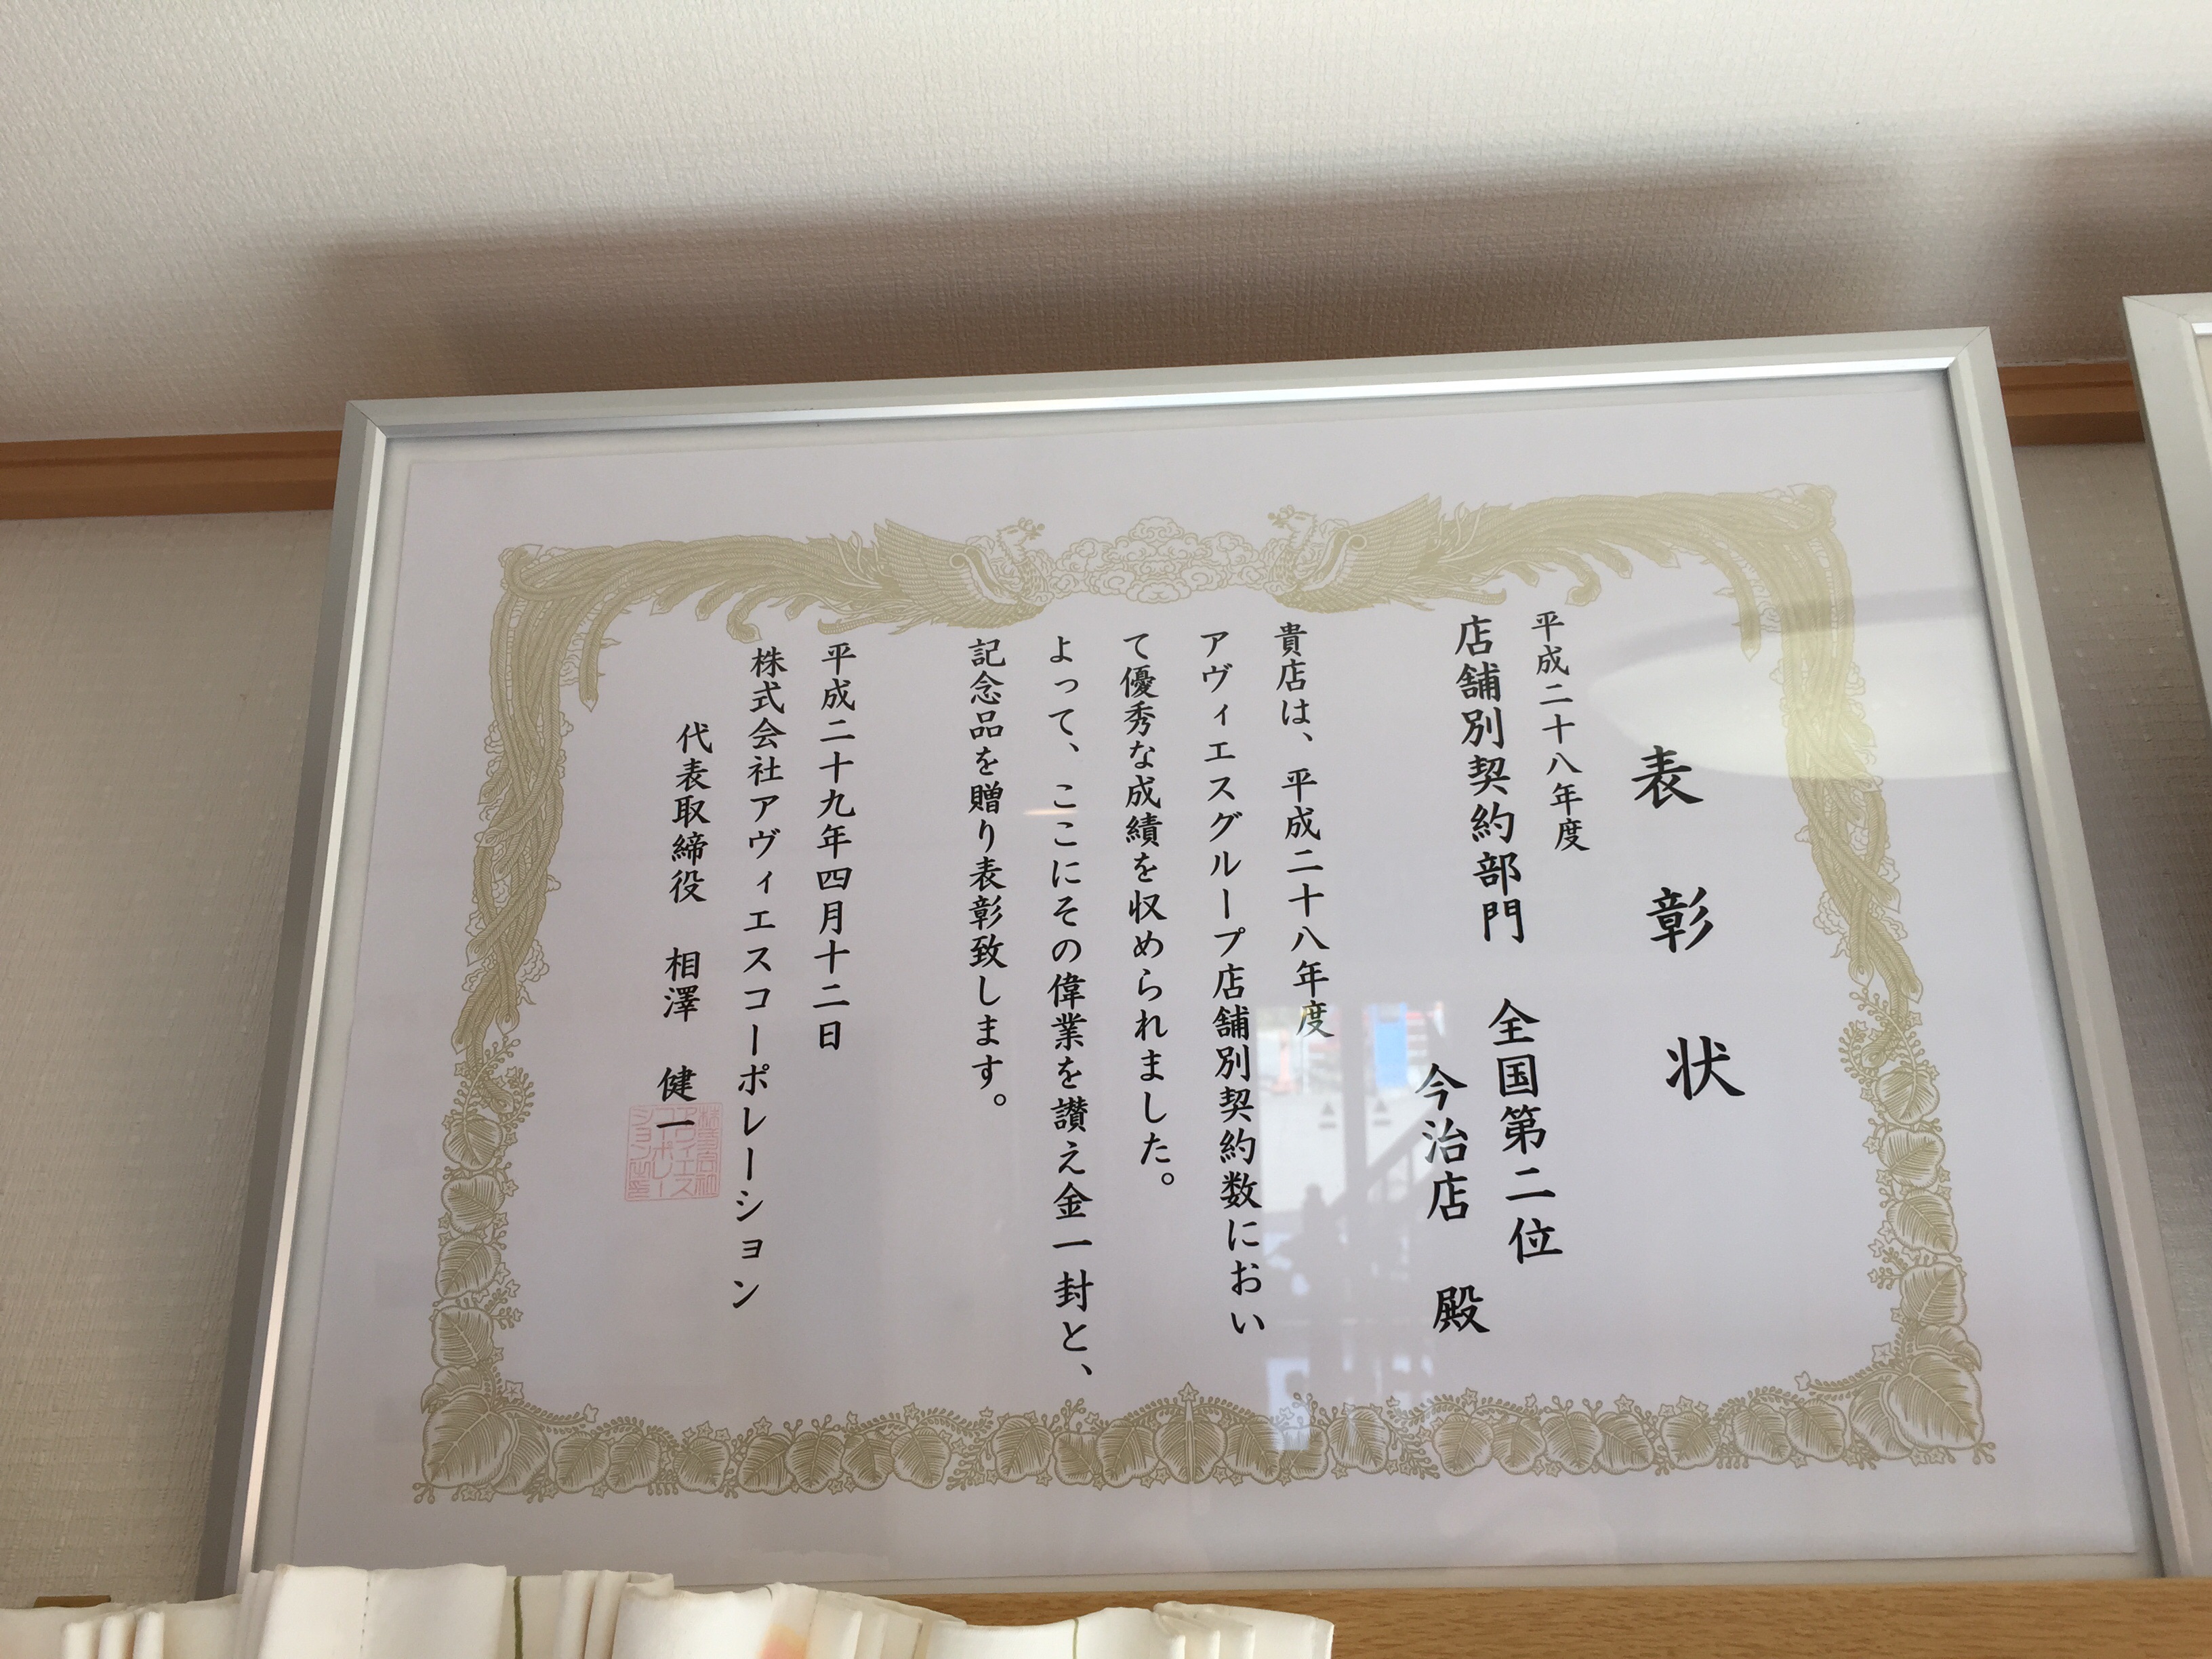 表彰状
平成二十八年度
店舗別契約部門　全国第二位
今治店　殿
貴店は、平成二十八年度
アヴィエスグループ店舗別契約数におい
て優秀な成績を収められました。
よって、ここにその偉業を讃え金一封と、
記念品を贈り表彰致します。
平成二十九年四月十二日
株式会社アヴィエスコーポレーション
代表取締役　相澤　健一
株式会社
アヴィエス
コーポレー
ション之印